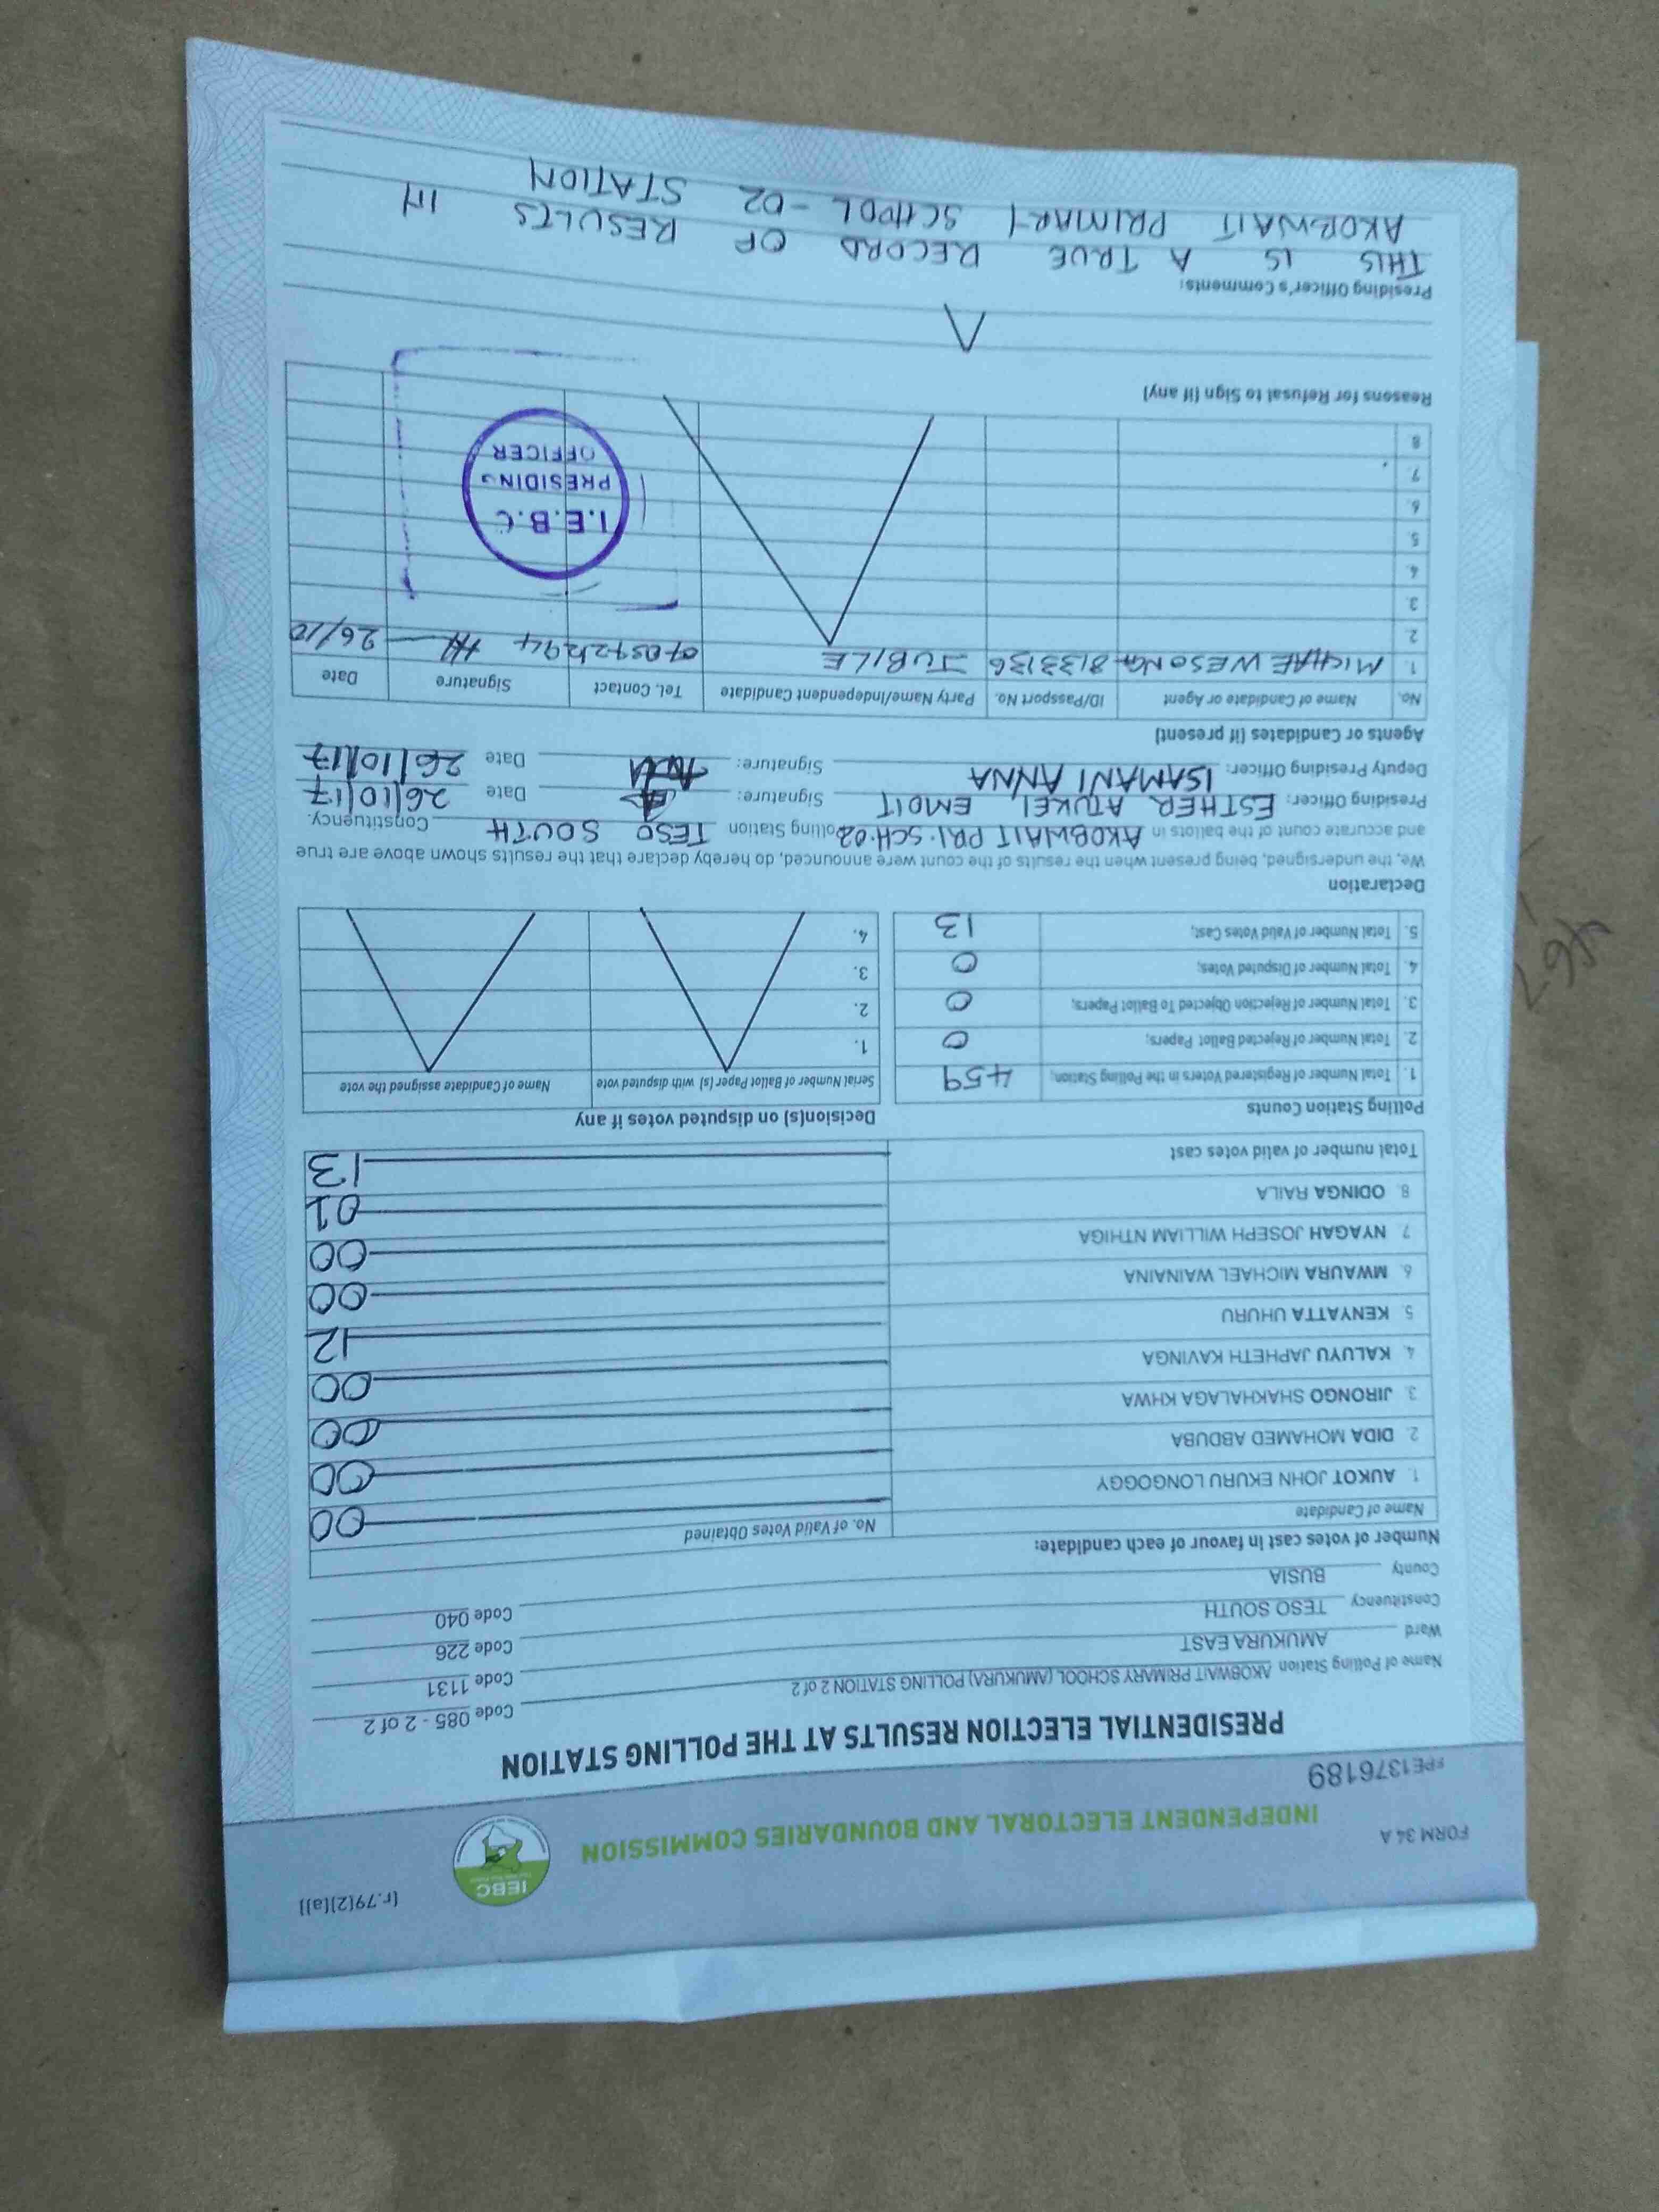 [r.79(2)(a)]
FORM 34 A
INDEPENDENT ELECTORAL AND BOUNDARIES COMMISSION
IEBC
FPE1376189
PRESIDENTIAL ELECTION RESULTS AT THE POLLING STATION
Name of Polling Station AKOBWAIT PRIMARY SCHOOL (AMUKURA) POLLING STATION 2 of 2 Code 085 - 2 of 2
Ward AMUKURA EAST Code 1131
Constituency TESO SOUTH Code 226
County BUSIA Code 040
Number of votes cast in favour of each candidate:
Name of Candidate No. of Valid Votes Obtained
1. AUKOT JOHN EKURU LONGOGGY 00
2. DIDA MOHAMED ABDUBA 00
3. JIRONGO SHAKHALAGA KHWA 00
4. KALUYU JAPHETH KAVINGA 00
5. KENYATTA UHURU 12
6. MWAURA MICHAEL WAINAINA 00
7. NYAGAH JOSEPH WILLIAM NTHIGA 00
8. ODINGA RAILA 01
Total number of valid votes cast 13
Polling Station Counts
1. Total Number of Registered Voters in the Polling Station; 459
2. Total Number of Rejected Ballot Papers; 0
3. Total Number of Rejection Objected To Ballot Papers; 0
4. Total Number of Disputed Votes; 0
5. Total Number of Valid Votes Cast; 13
Decision(s) on disputed votes if any
Serial Number of Ballot Paper (s) with disputed vote Name of Candidate assigned the vote
1.
2.
3.
4.
Declaration
We, the undersigned, being present when the results of the count were announced, do hereby declare that the results shown above are true
and accurate count of the ballots in AKOBWAIT PRI. SCH. 02 Polling Station TESO SOUTH Constituency.
Presiding Officer: ESTHER ATUKEI EMOIT Signature: Date 26/10/17
Deputy Presiding Officer: ISAMANI ANNA Signature: Date 26/10/17
Agents or Candidates (if present)
No. Name of Candidate or Agent ID/Passport No. Party Name/Independent Candidate Tel. Contact Signature Date
1. MICHAE WESONGA 8133136 JUBILE 26/10
2
3
4
5
6
7
8
I.E.B.C
PRESIDING
OFFICER
Reasons for Refusal to Sign (if any)
Presiding Officer's Comments:
THIS IS A TRUE RECORD OF RESULTS IN
AKOBWAIT PRIMARY SCHOOL -02 STATION